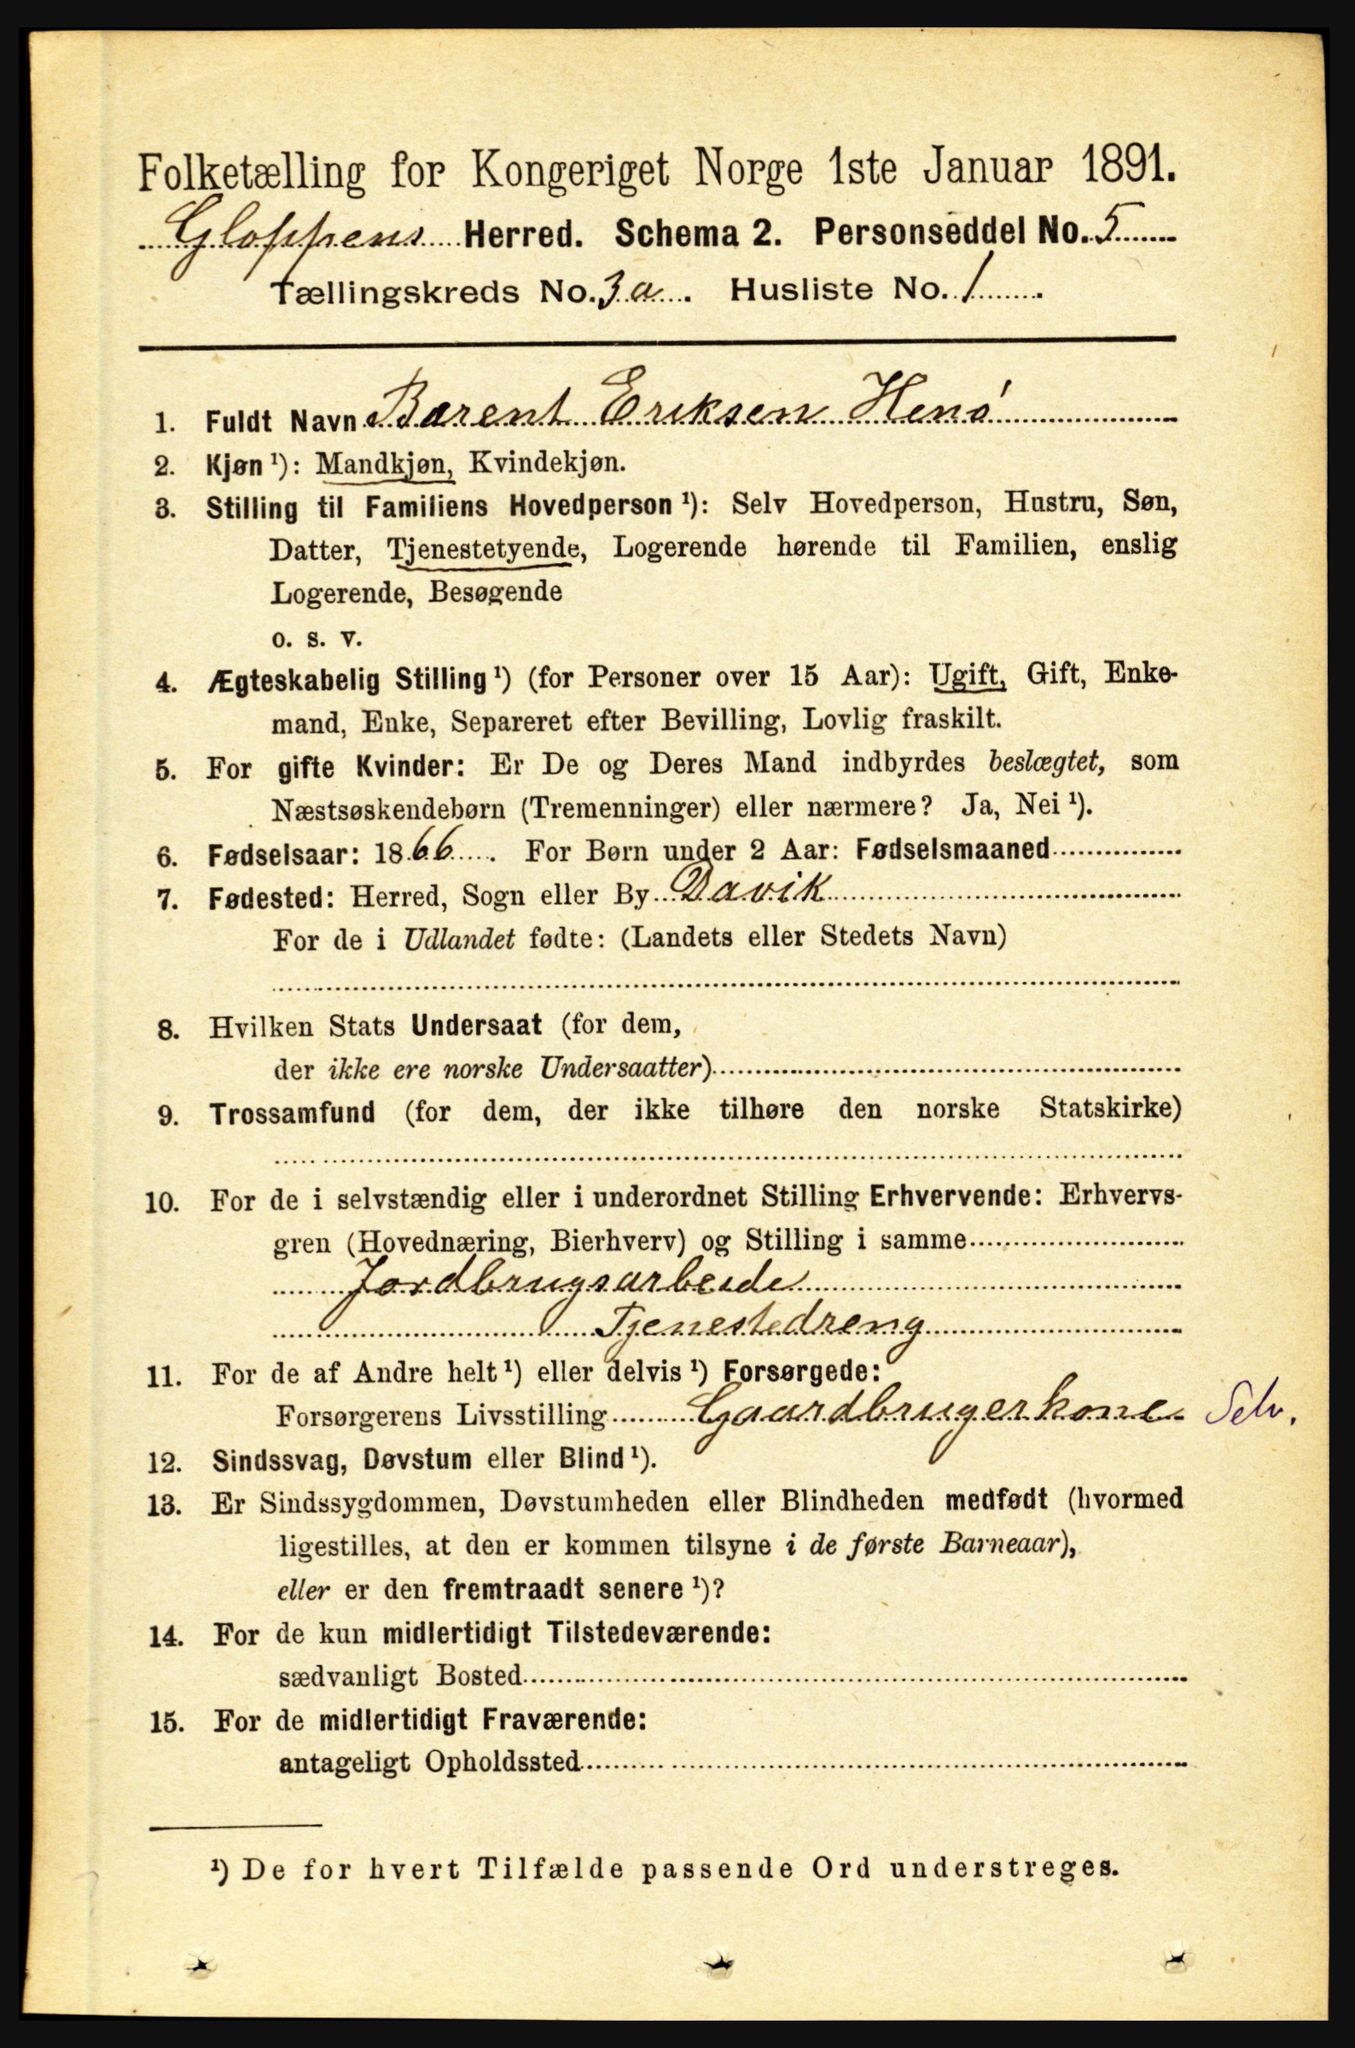 Folketælling for Kongeriget Norge 1ste Januar 1891.
Gloppens Herred. Schema 2. Personseddel No. 5
Tællingskreds No. 3a. Husliste No. 1.
1. Fuldt Navn Barent Eriksen Henø
2. Kjøn ¹): Mandkjøn, Kvindekjøn.
3. Stilling til Familiens Hovedperson ¹): Selv Hovedperson, Hustru, Søn,
Datter, Tjenestetyende, Logerende hørende til Familien, enslig
Logerende, Besøgende
o. s. v.
4. Ægteskabelig Stilling ¹) (for Personer over 15 Aar): Ugift, Gift, Enke-
mand, Enke, Separeret efter Bevilling, Lovlig fraskilt.
5. For gifte Kvinder: Er De og Deres Mand indbyrdes beslægtet, som
Næstsøskendebørn (Tremenninger) eller nærmere? Ja, Nei ¹).
6. Fødselsaar: 1866. For Børn under 2 Aar: Fødselsmaaned
7. Fødested: Herred, Sogn eller By Davik
For de i Udlandet fødte: (Landets eller Stedets Navn)
8. Hvilken Stats Undersaat (for dem,
der ikke ere norske Undersaatter)
9. Trossamfund (for dem, der ikke tilhøre den norske Statskirke)
10. For de i selvstændig eller i underordnet Stilling Erhvervende: Erhvervs-
gren (Hovednæring, Bierhverv) og Stilling i samme
Jordbrugsarbeide
Tjenestedreng
11. For de af Andre helt ¹) eller delvis ¹) Forsørgede:
Forsørgerens Livsstilling Gaardbrugerkone Selv.
12. Sindssvag, Døvstum eller Blind ¹).
13. Er Sindssygdommen, Døvstumheden eller Blindheden medfødt (hvormed
ligestilles, at den er kommen tilsyne i de første Barneaar),
eller er den fremtraadt senere ¹)?
14. For de kun midlertidigt Tilstedeværende:
sædvanligt Bosted
15. For de midlertidigt Fraværende:
antageligt Opholdssted
¹) De for hvert Tilfælde passende Ord understreges.